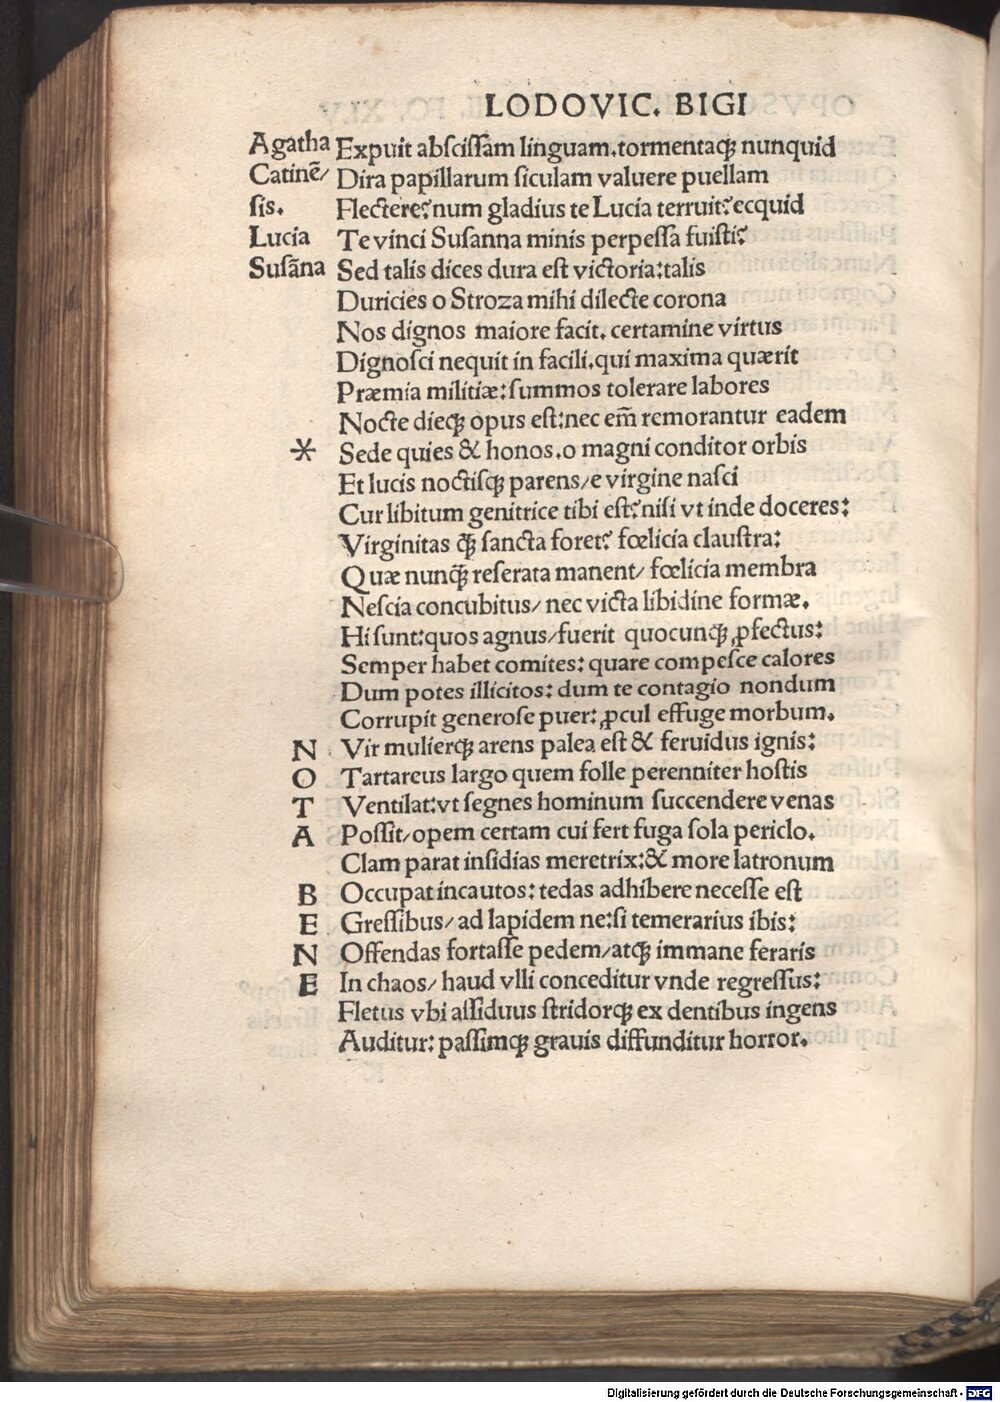 LODOVIC. BIGI
Agatha Expuit abſciſſam linguam.tormentaqꝫ nunquid
Catinē/ Dira papillarum ſiculam valuere puellam
ſis. Flectere?num gladius te Lucia terruit?ecquid
Lucia Te vinci Suſanna minis perpeſſa fuiſti?
Suſāna Sed talis dices dura eſt victoria:talis
Duricies o Stroza mihi dilecte corona
Nos dignos maiore facit. certamine virtus
Dignoſci nequit in facili.qui maxima quærit
Præmia militiæ:ſummos tolerare labores
Nocte dieqꝫ opus eſt:nec em̄ remorantur eadem
* Sede quies & honos.o magni conditor orbis
Et lucis noctiſqꝫ parens/e virgine naſci
Cur libitum genitrice tibi eſt?niſi vt inde doceres:
Virginitas q̄ꝫ ſancta foret? fœlicia clauſtra:
Quæ nunq̄ꝫ reſerata manent/ fœlicia membra
Neſcia concubitus/ nec victa libidine formæ.
Hi ſunt:quos agnus/fuerit quocunqꝫ ꝓfectus:
Semper habet comites: quare compeſce calores
Dum potes illicitos: dum te contagio nondum
Corrupit generoſe puer: ꝓcul effuge morbum.
N Vir mulierqꝫ arens palea eſt & feruidus ignis:
O Tartareus largo quem folle perenniter hoſtis
T Ventilat:vt ſegnes hominum ſuccendere venas
A Poſſit/opem certam cui fert fuga ſola periclo.
Clam parat inſidias meretrix:& more latronum
B Occupat incautos: tedas adhibere neceſſe eſt
E Greſſibus/ ad lapidem ne:ſi temerarius ibis:
N Offendas fortaſſe pedem/atqꝫ immane feraris
E In chaos/ haud vlli conceditur vnde regreſſus:
Fletus vbi aſſiduus ſtridorqꝫ ex dentibus ingens
Auditur: paſſimqꝫ grauis diffunditur horror.
Digitalisierung gefördert durch die Deutsche Forschungsgemeinschaft - DFG